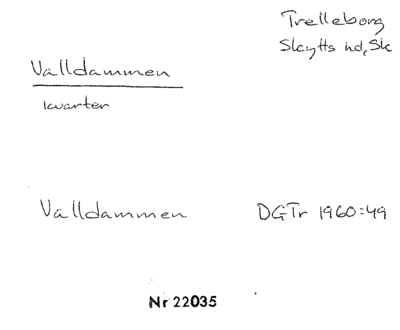 Trelleborg
Skytts hd, Sk
Välldammen
kvarter
Välldammen DGTr 1960:49
Nr 22035